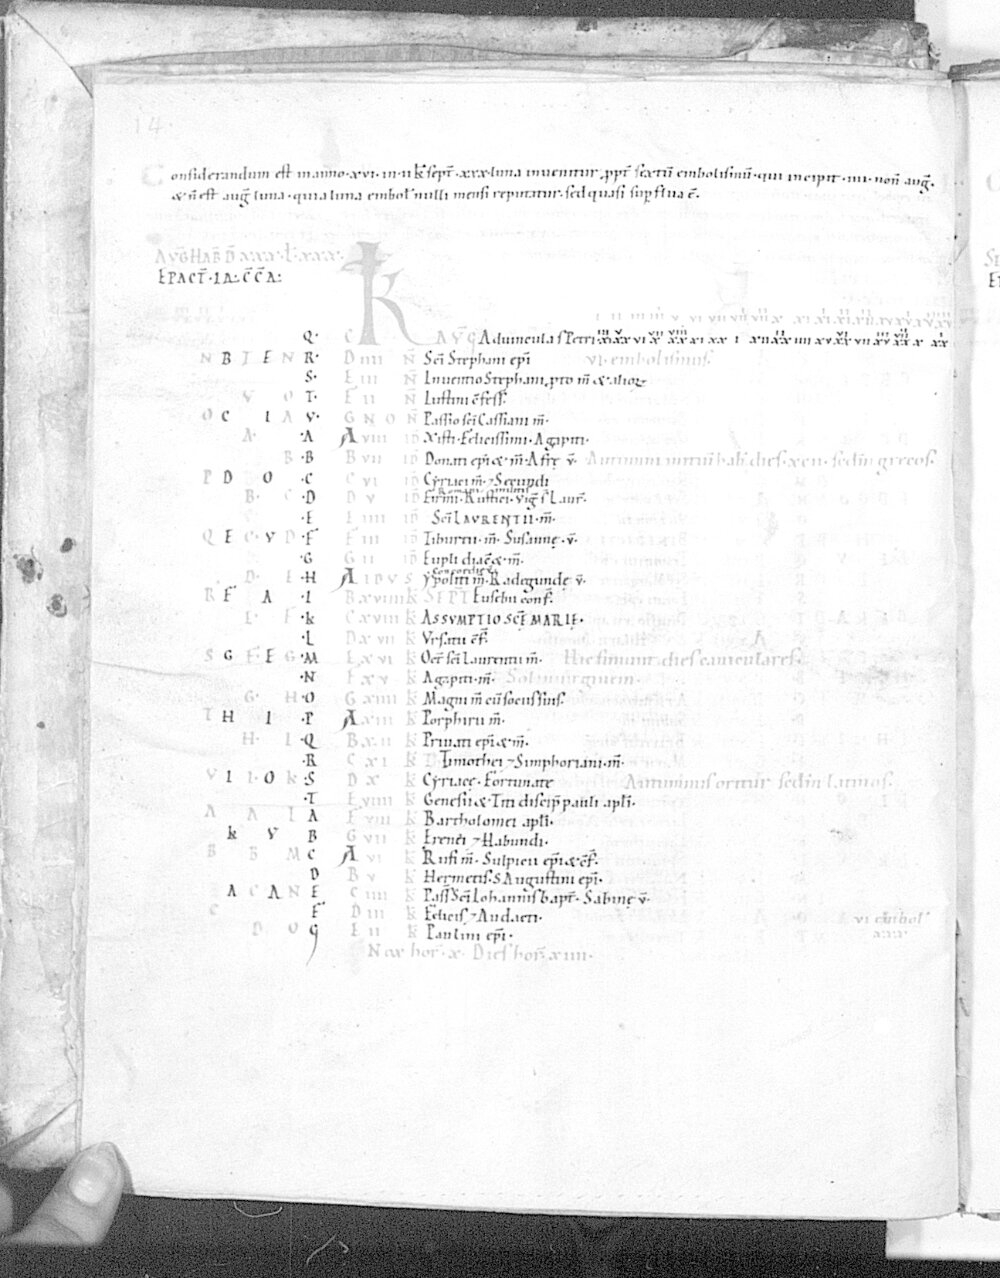 14
Considerandum est in anno · xvi · in · ii k̅ sept̅ · xxx · luna inuenitur · ꝓpt̅ sextu̅ embolismu̅ · qui incipit · iiii · non̅ aug̅ ·
& n̅ est aug̅ luna · quia luna embol̅ nulli mensi reputatur · sed quasi sup̅flua e̅ ·
AVG̅ HAB̅ D̅ xxxi · L̅ · xxx ·
EPACT̅ · IA · C̅C̅A ·
K
Q · C AVG̅ Aduincula s̅ Petri
N B I E N R · D iiii N̅ Sci̅ Stephani epi̅ vi · embolismus ·
S · E iii N̅ Inuentio Stephani, ꝓto m̅ & alioꝝ
V O T · F ii N̅ Iustini c̅fess̅ ·
O C I A V · G NON̅ Passio sci̅ Cassiani m̅ ·
A · A A viii id̅ Xisti · Felicissimi · Agapiti ·
B · B B vii id̅ Donati epi̅ & m̅ · Afrę v̅ · Autumni initiu̅ hab̅ dies · xcii · sedm̅ grecos ·
P D O · C C vi id̅ Cyriaci m̅ · ⁊ Secundi
B · C · D D v id̅ Firmi · Rustici · Vig̅ s̅ Laur̅ ·
Romani militis
· E E iiii id̅ Sci̅ LAVRENTII · m̅ ·
Q E C · V D · F F iii id̅ Tiburtii · m̅ · Susannę · v̅ ·
· G G ii id̅ Eupli diac̅ & m̅ ·
D · E · H A IDVS Ypoliti m̅ · Radegunde v̅ ·
Concordie v̅
R F A · I B xviiii k SEPT̅ Eusebii conf̅ ·
E · F · k C xviii k ASSVMPTIO SCE̅ MARIĘ ·
· L D xvii k Vrsatii c̅f̅ ·
S G F E G · M E xvi k Oct̅ sci̅ Laurentii m̅ · Hic finiunt dies caniculares ·
· N F xv k Agapiti · m̅ · Sol in uirginem ·
G · H O G xiiii k Magni m̅ cu̅ sociis suis ·
T H I · P A xiii k Porphirii m̅ ·
H · I · Q B xii k Priuati epi̅ & m̅ ·
· R C xi k Timothei ⁊ Simphoriani · m̅ ·
V I I O K · S D x k Cyriace · Fortunate Autumnus oritur sedm̅ latinos ·
· T E viiii k Genesii & Titi discip̅ pauli apl̅i ·
A A I A F viii k Bartholomei apl̅i ·
k V B G vii k Erenei ⁊ Habundi ·
B B M C A vi k Rufi m̅ · Sulpicii epi̅ & c̅f̅ ·
D B v k Hermetis · S Augustini epi̅ ·
A C A N E C iiii k Pass̅ Sci̅ Iohannis bapt̅ · Sabinę v̅ ·
C F D iii k Felicis ⁊ Audacti · vi embol̅
D O G E ii k Paulini epi̅ ·
Nox hor̅ · x · Dies hor̅ xiiii ·